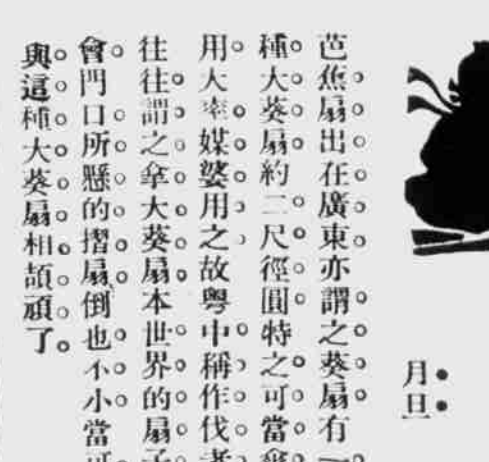 月旦
芭焦扇出在廣東亦謂之葵扇有一
種大葵扇約二尺徑圓特之可當傘
用大率媒婆用之故粵中稱作伐者
往往謂之拿大葵扇本世界的扇子
會門口所懸的摺扇倒也不小當可
與這種大葵扇相頡頏了